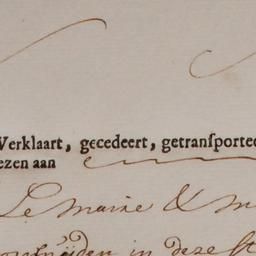 Verklaart, gecedeert, getransportee
ezen aan
Le maire & m
in deze st